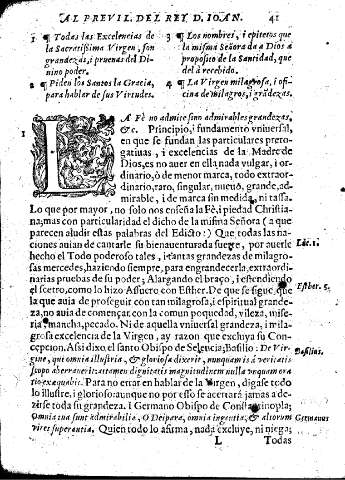 AL PREVIL. DEL REY D. IOAN. 41
1 ¶ Todas las Excelencias de
la Sacratissima Virgen, son
grandezas, i pruevas del Di-
nino poder.
2 ¶ Piden los Santos la Gracia,
para hablar de sus Virtudes.
3 ¶ Los nombres, i epitetos que
la misma Señora da a Dios a
proposito de la Santidad, que
del à recebido.
4 ¶ La Virgen milagrosa, i ofi-
cina de milagros, i grãdezas.
1
LA Fè no admite sino admirables grandezas,
&c. Principio, i fundamento vniuersal,
en que se fundan las particulares prero-
gatiuas, i excelencias de la Madre de
Dios, es no auer en ella nada vulgar, i or-
dinario, ò de menor marca, todo extraor-
dinario, raro, singular, nueuo, grande, ad-
mirable, i de marca sin medida, ni tassa.
Lo que por mayor, no solo nos enseña la Fè, i piedad Christia-
na, mas con particularidad el dicho de la misma Señora (a que
parecen aludir estas palabras del Edicto:) Que todas las na-
ciones auian de cantarle su bienauenturada suerte, por auerle
hecho el Todo poderoso tales, i tantas grandezas de milagro-
sas mercedes, haziendo siempre, para engrandecerla, extraordi-
narias pruebas de su poder; Alargando el braço, i estendiendo
el scetro, como lo hizo Assuero con Esther. De que se sigue que
la que auia de proseguir con tan milagrosa, i espiritual grande-
za, no auia de començar con la comun poquedad, vileza, mise-
ria, mancha, pecado. Ni de aquella vniuersal grandeza, i mila-
grosa excelencia de la Virgen, ay razon que excluya su Con-
cepcion. Assi dixo el santo Obispo de Selencia; Basilio: De Vir-
gine, qui omnia illustria, & gloriosa dixerit, nunquam is à veritatis
scopo aberrauerit: attamen dignitatis magnitudinem nulla vnquam ora
tio exæquabit. Para no errar en hablar de la Virgen, digase todo
lo illustre, i glorioso: aunque no por esso se acertarà jamas a de-
zirse toda su grandeza. I Germano Obispo de Constantinopla;
Omnia tua sunt admirabilia, O Deipara, omnia ingentia, & aliorum
vires superantia. Quien todo lo afirma, nada excluye, ni niega;
Luc. 1.
Esther 5.
Basilius.
Germanus
L Todas